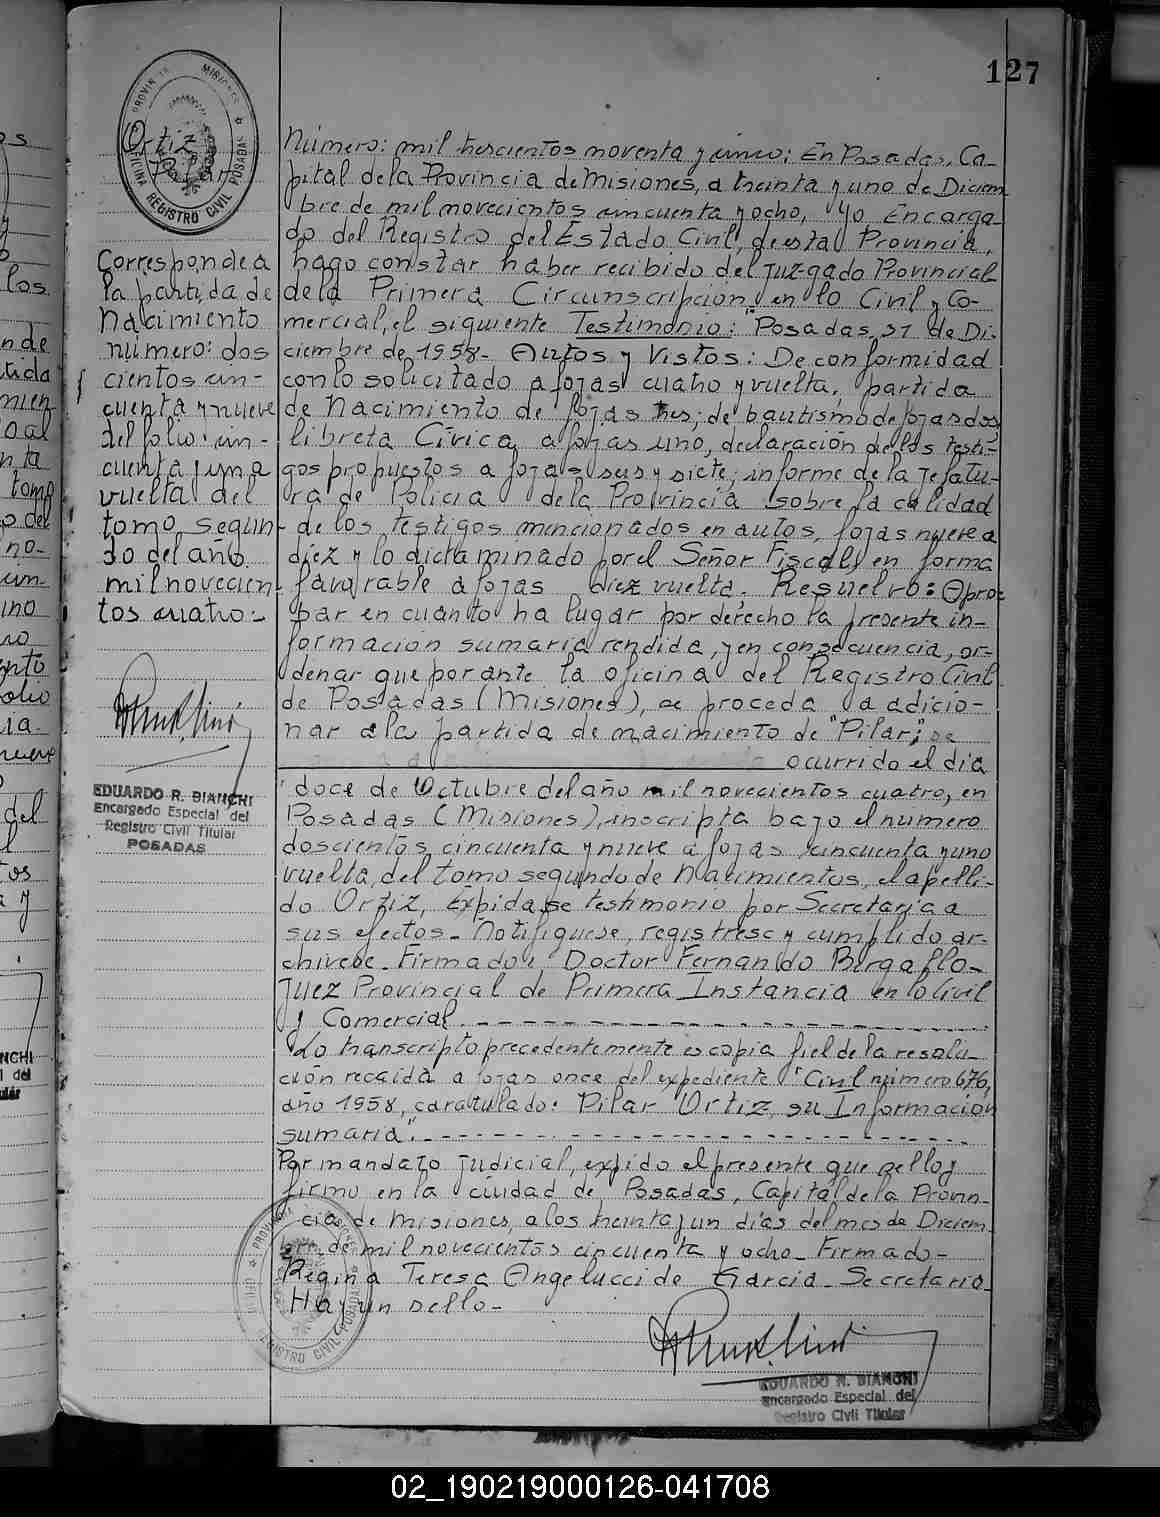 127
PROVINCIA MISIONES
OFICINA REGISTRO CIVIL POSADAS
Ortiz
Pilar
Corresponde a
la partida de
Nacimiento
número: dos
cientos cin-
cuenta y nueve
del folio: cin-
cuenta y una
vuelta del
tomo segun-
do del año
mil novecien-
tos cuatro.-
EDUARDO R. BIANCHI
Encargado Especial del
Registro Civil Titular
POSADAS
Número: mil trescientos noventa y cinco: En Posadas, Ca-
pital de la Provincia de Misiones, a treinta y uno de Diciem
bre de mil novecientos cincuenta y ocho, Yo Encarga-
do del Registro del Estado Civil, de esta Provincia,
hago constar haber recibido del Juzgado Provincial
de la Primera Circunscripcion en lo Civil y Co-
mercial, el siguiente Testimonio: "Posadas, 31 de Di-
ciembre de 1958- Autos y Vistos: De conformidad
con lo solicitado a fojas cuatro y vuelta, partida
de Nacimiento de fojas tres; de bautismo de fojas dos,
libreta Cívica a fojas uno, declaración de los testi-
gos propuestos a fojas seis y siete; informe de la Jefatu-
ra de Policia de la Provincia sobre la calidad
de los testigos mencionados en autos, fojas nueve a
diez y lo dictaminado por el Señor Fiscal en forma
favorable a fojas diez vuelta. Resuelvo: Apro-
bar en cuanto ha lugar por derecho la presente in-
formación sumaria rendida, y en consecuencia, or-
denar que por ante la oficina del Registro Civil
de Posadas (Misiones), se proceda a adicio-
nar a la partida de nacimiento de "Pilar",
ocurrido el día
doce de Octubre del año mil novecientos cuatro, en
Posadas (Misiones), inscripta bajo el numero
doscientos cincuenta y nueve a fojas cincuenta y uno
vuelta, del tomo segundo de Nacimientos, el apelli-
do Ortiz, Expidase testimonio por Secretaría a
sus efectos- Notifiquese, registrese y cumplido ar-
chivese. Firmado: Doctor Fernando Bergallo-
Juez Provincial de Primera Instancia en lo Civil
y Comercial.
Lo transcripto precedentemente es copia fiel de la resolu-
ción recaida a fojas once del expediente "Civil número 676,
año 1958, caratulado: Pilar Ortiz, su Informacion
sumaria".
Por mandato judicial, expido el presente que sello y
firmo en la ciudad de Posadas, Capital de la Provin-
cia de Misiones, a los treinta y un días del mes de Diciem-
bre de mil novecientos cincuenta y ocho- Firmado-
Regina Teresa Angelucci de Garcia- Secretario-
Hay un sello-
EDUARDO R. BIANCHI
Encargado Especial del
Registro Civil Titular
02_190219000126-041708